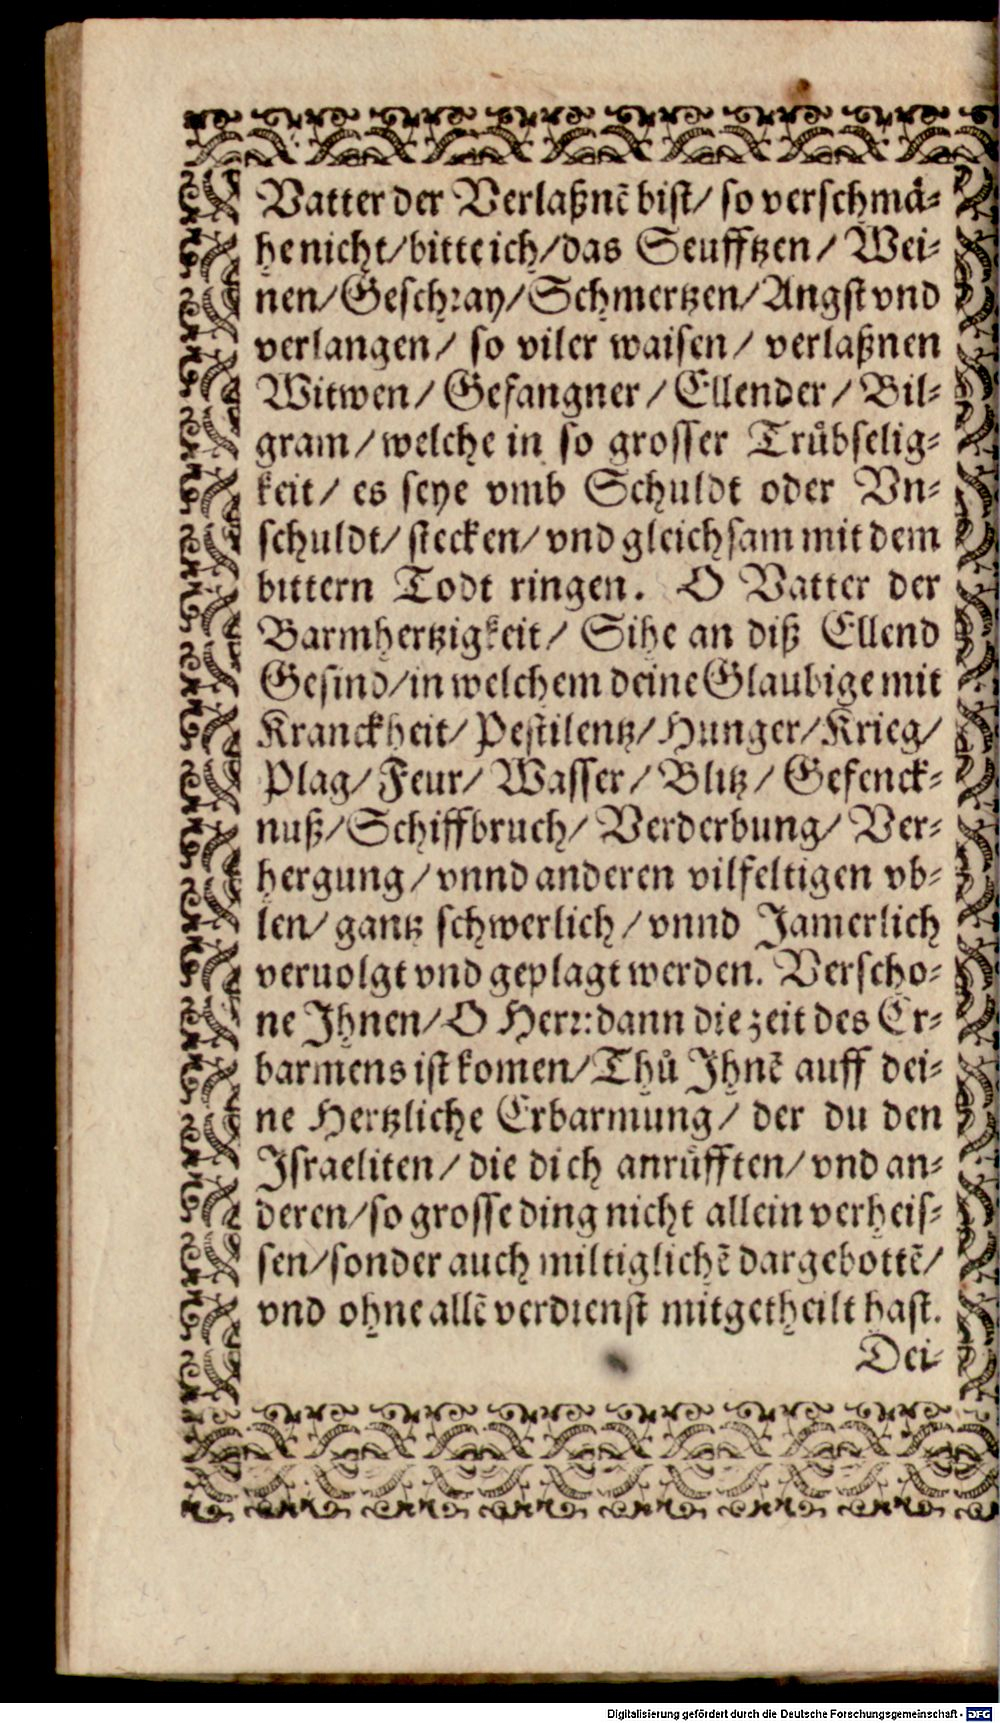 Vatter der Verlaßnẽ bist/ so verschmä-
he nicht/bitte ich/das Seufftzen/ Wei-
nen/Geschray/Schmertzen/Angst vnd
verlangen/ so viler waisen/ verlaßnen
Witwen/ Gefangner/ Ellender/ Bil-
gram/welche in so grosser Trůbselig-
keit/ es seye vmb Schuldt oder Vn-
schuldt/ stecken/ vnd gleichsam mit dem
bittern Todt ringen. O Vatter der
Barmhertzigkeit/ Sihe an diß Ellend
Gesind/in welchem deine Glaubige mit
Kranckheit/ Pestilentz/ Hunger/Krieg/
Plag/ Feur/ Wasser/ Blitz/ Gefenck-
nuß/Schiffbruch/ Verderbung/ Ver-
hergung/vnnd anderen vilfeltigen vb-
len/ gantz schwerlich/ vnnd Jamerlich
veruolgt vnd geplagt werden. Verscho-
ne Jhnen/O Herr:dann die zeit des Er-
barmens ist komen/Thů Jhnẽ auff dei-
ne Hertzliche Erbarmung/ der du den
Israeliten/ die dich anrůfften/ vnd an-
deren/so grosse ding nicht allein verheis-
sen/sonder auch miltiglichẽ dargebottẽ/
vnd ohne allẽ verdienst mitgetheilt hast.
Dei-
Digitalisierung gefördert durch die Deutsche Forschungsgemeinschaft - DFG